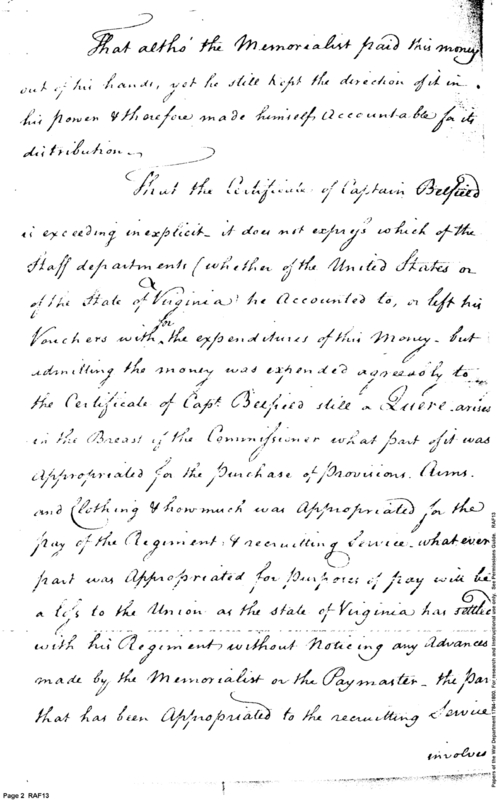 That altho' the Memorialist paid this money
out of his hands, yet he still kept the direction of it in
his power & therefore made himself Accountable for its
distribution.
That the Certificate of Captain Belfield
is exceeding inexplicit - it does not express which of the
Staff departments (whether of the United States or
of the State of Virginia) he Accounted to, or left his
Vouchers with for the expenditures of this Money - but
admitting the money was expended agreeably to
the Certificate of Capt. Belfield still a Quere arises
in the Breast of the Commissioner what part of it was
Appropriated for the purchase of Provisions. Arms.
and Clothing & how much was Appropriated for the
pay of the Regiment & recruiting Service - what ever
part was Appropriated for Purposes of pay will be
a loss to the Union as the state of Virginia has settled
with his Regiment without Noticing any Advances
made by the Memorialist or the Paymaster - the par
that has been Appropriated to the recruiting Service
involves
Page 2 RAF13
Papers of the War Department 1784-1800. For research and instructional use only. See Permissions Guide. RAF13